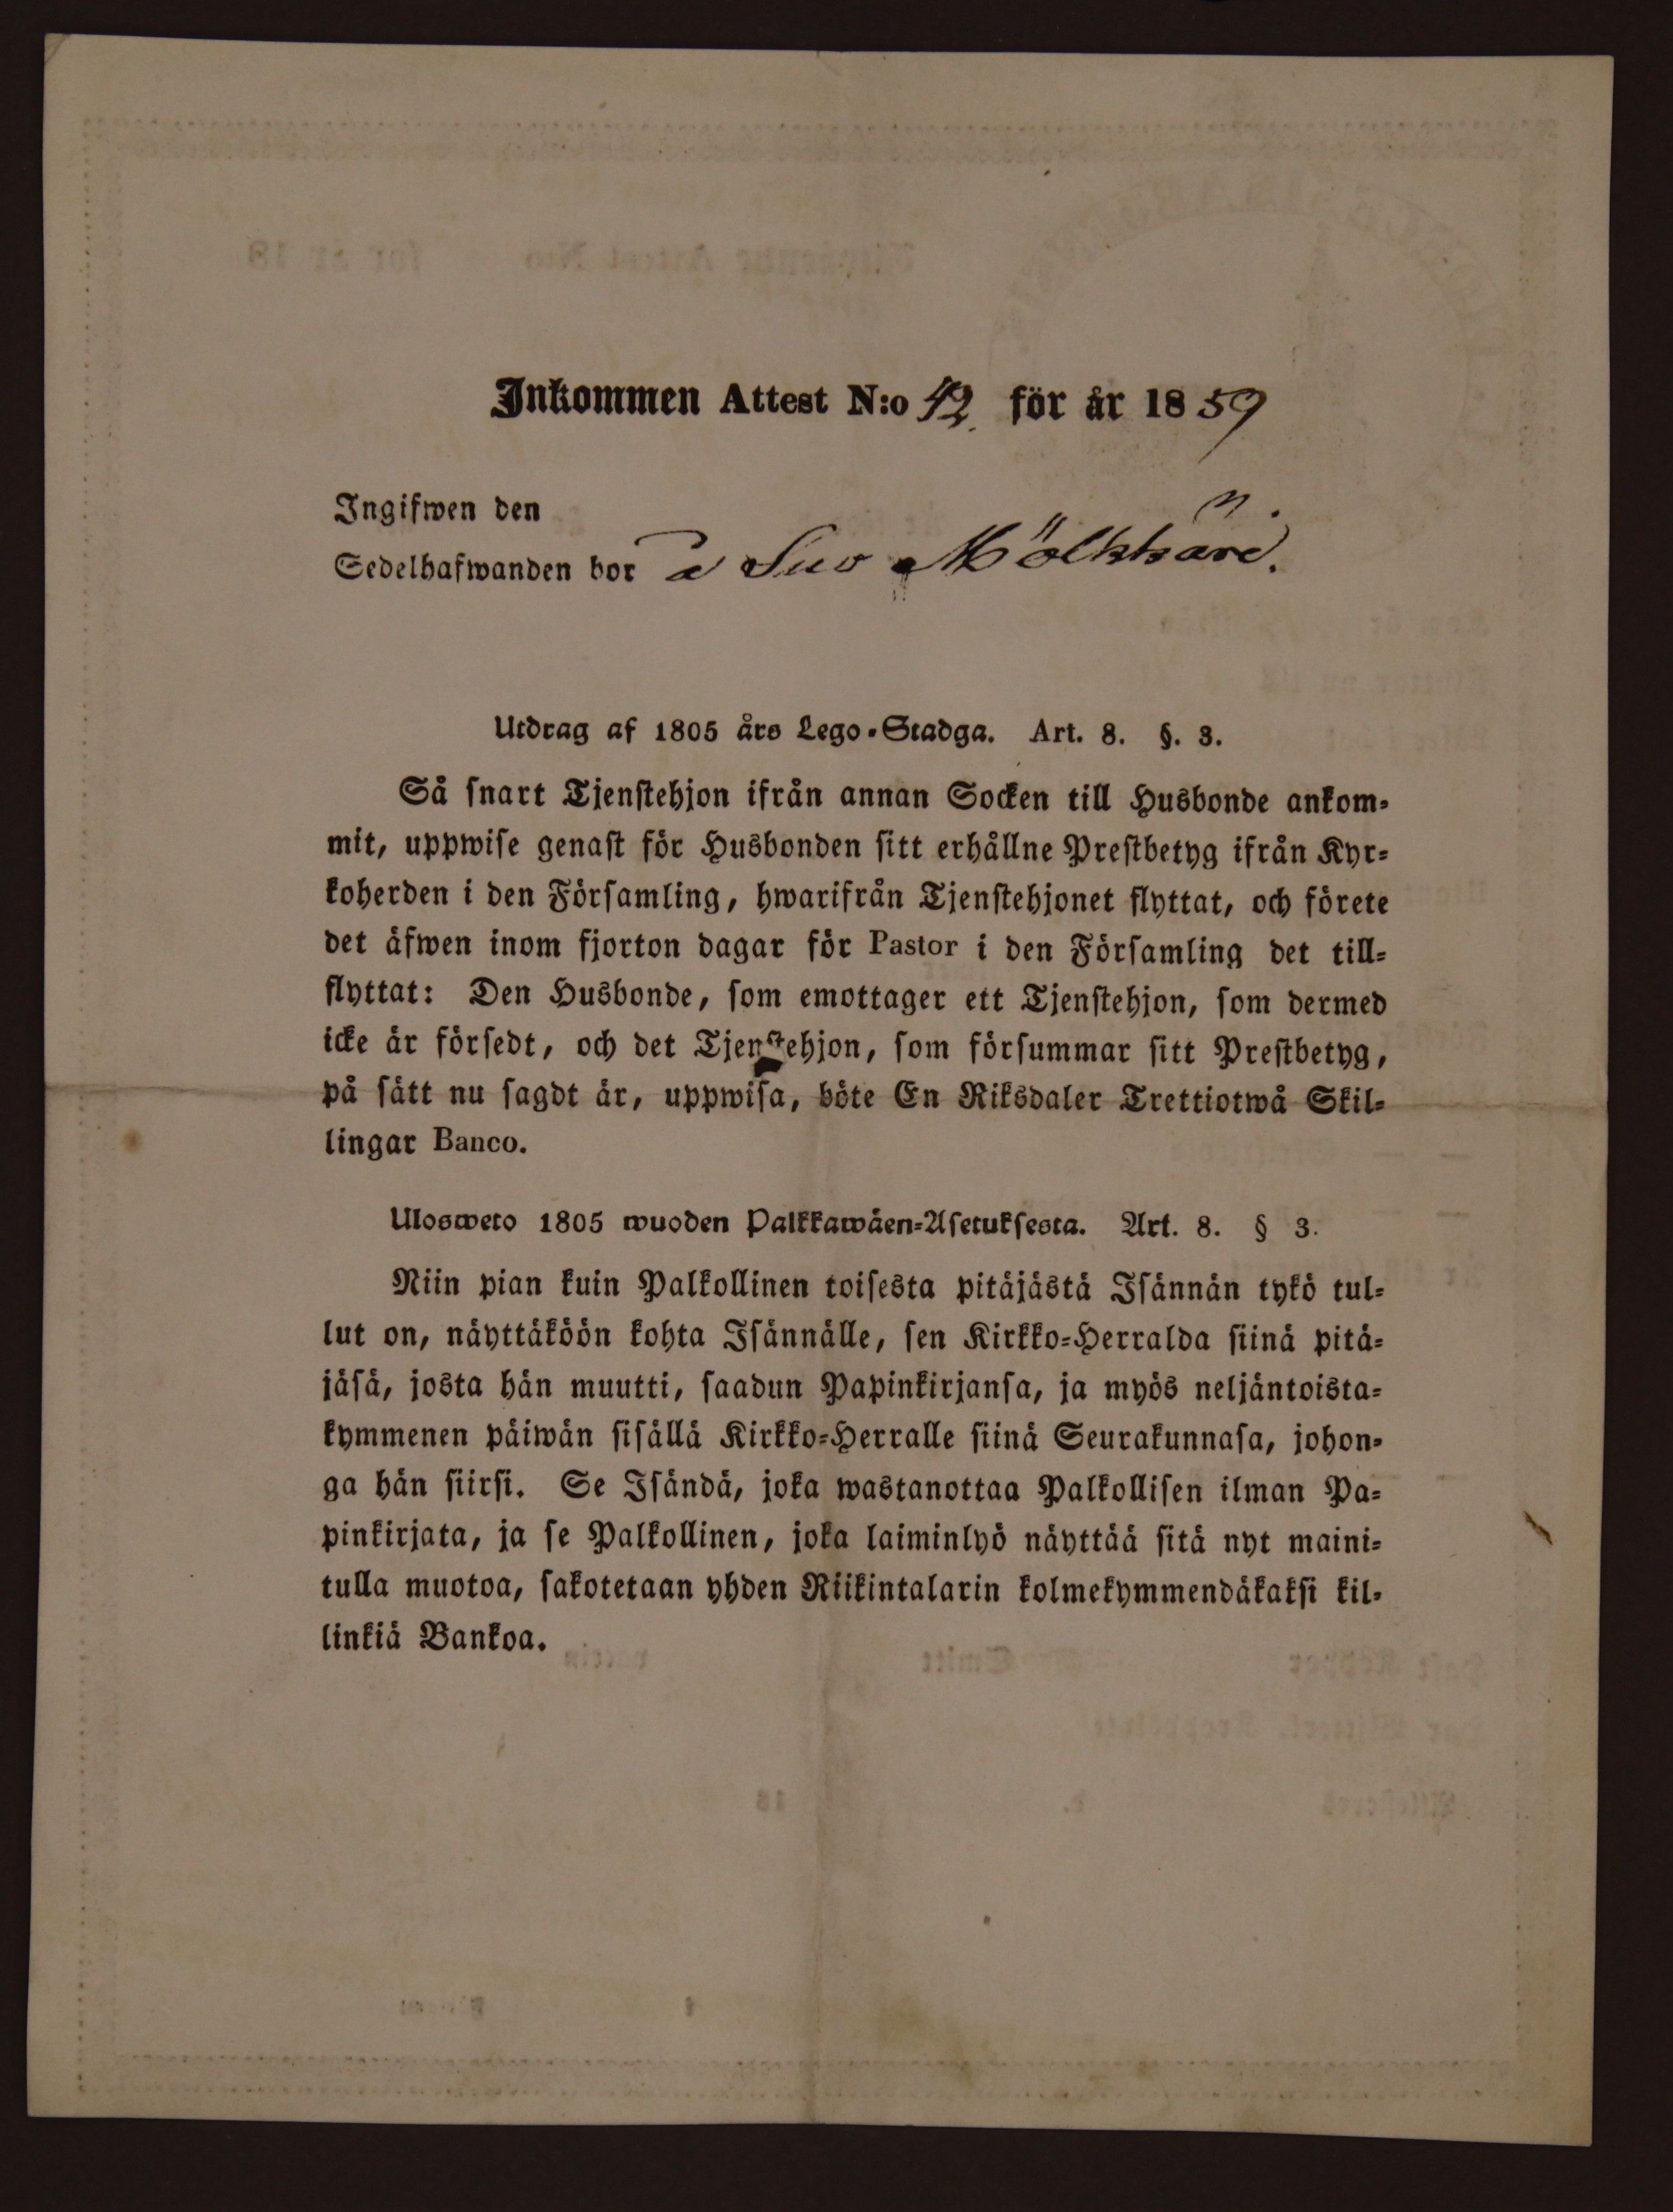 Inkommen Attest N:o 42. för år 1859
Ingifwen den
Sedelhafwanden bor å Suo Mölkkäre.
Utdrag af 1805 års Lego-Stadga. Art. 8. §. 3.
Så snart Tjenstehjon ifrån annan Socken till Husbonde ankom-
mit, uppwise genast för Husbonden sitt erhållne Prestbetyg ifrån Kyr-
koherden i den Församling, hwarifrån Tjenstehjonet flyttat, och förete
det äfwen inom fjorton dagar för Pastor i den Församling det till-
flyttat: Den Husbonde, som emottager ett Tjenstehjon, som dermed
icke är försedt, och det Tjenstehjon, som försummar sitt Prestbetyg,
på sätt nu sagdt är, uppwisa, böte En Riksdaler Trettiotwå Skil-
lingar Banco.
Ulosweto 1805 wuoden Palkkawäen-Asetuksesta. Art. 8. § 3.
Niin pian kuin Palkollinen toisesta pitäjästä Isännän tykö tul-
lut on, näyttäköön kohta Isännälle, sen Kirkko-Herralda siinä pitä-
jäsä, josta hän muutti, saadun Papinkirjansa, ja myös neljäntoista-
kymmenen päiwän sisällä Kirkko-Herralle siinä Seurakunnasa, johon-
ga hän siirsi. Se Isändä, joka wastanottaa Palkollisen ilman Pa-
pinkirjata, ja se Palkollinen, joka laiminlyö näyttää sitä nyt maini-
tulla muotoa, sakotetaan yhden Riikintalarin kolmekymmendäkaksi kil-
linkiä Bankoa.